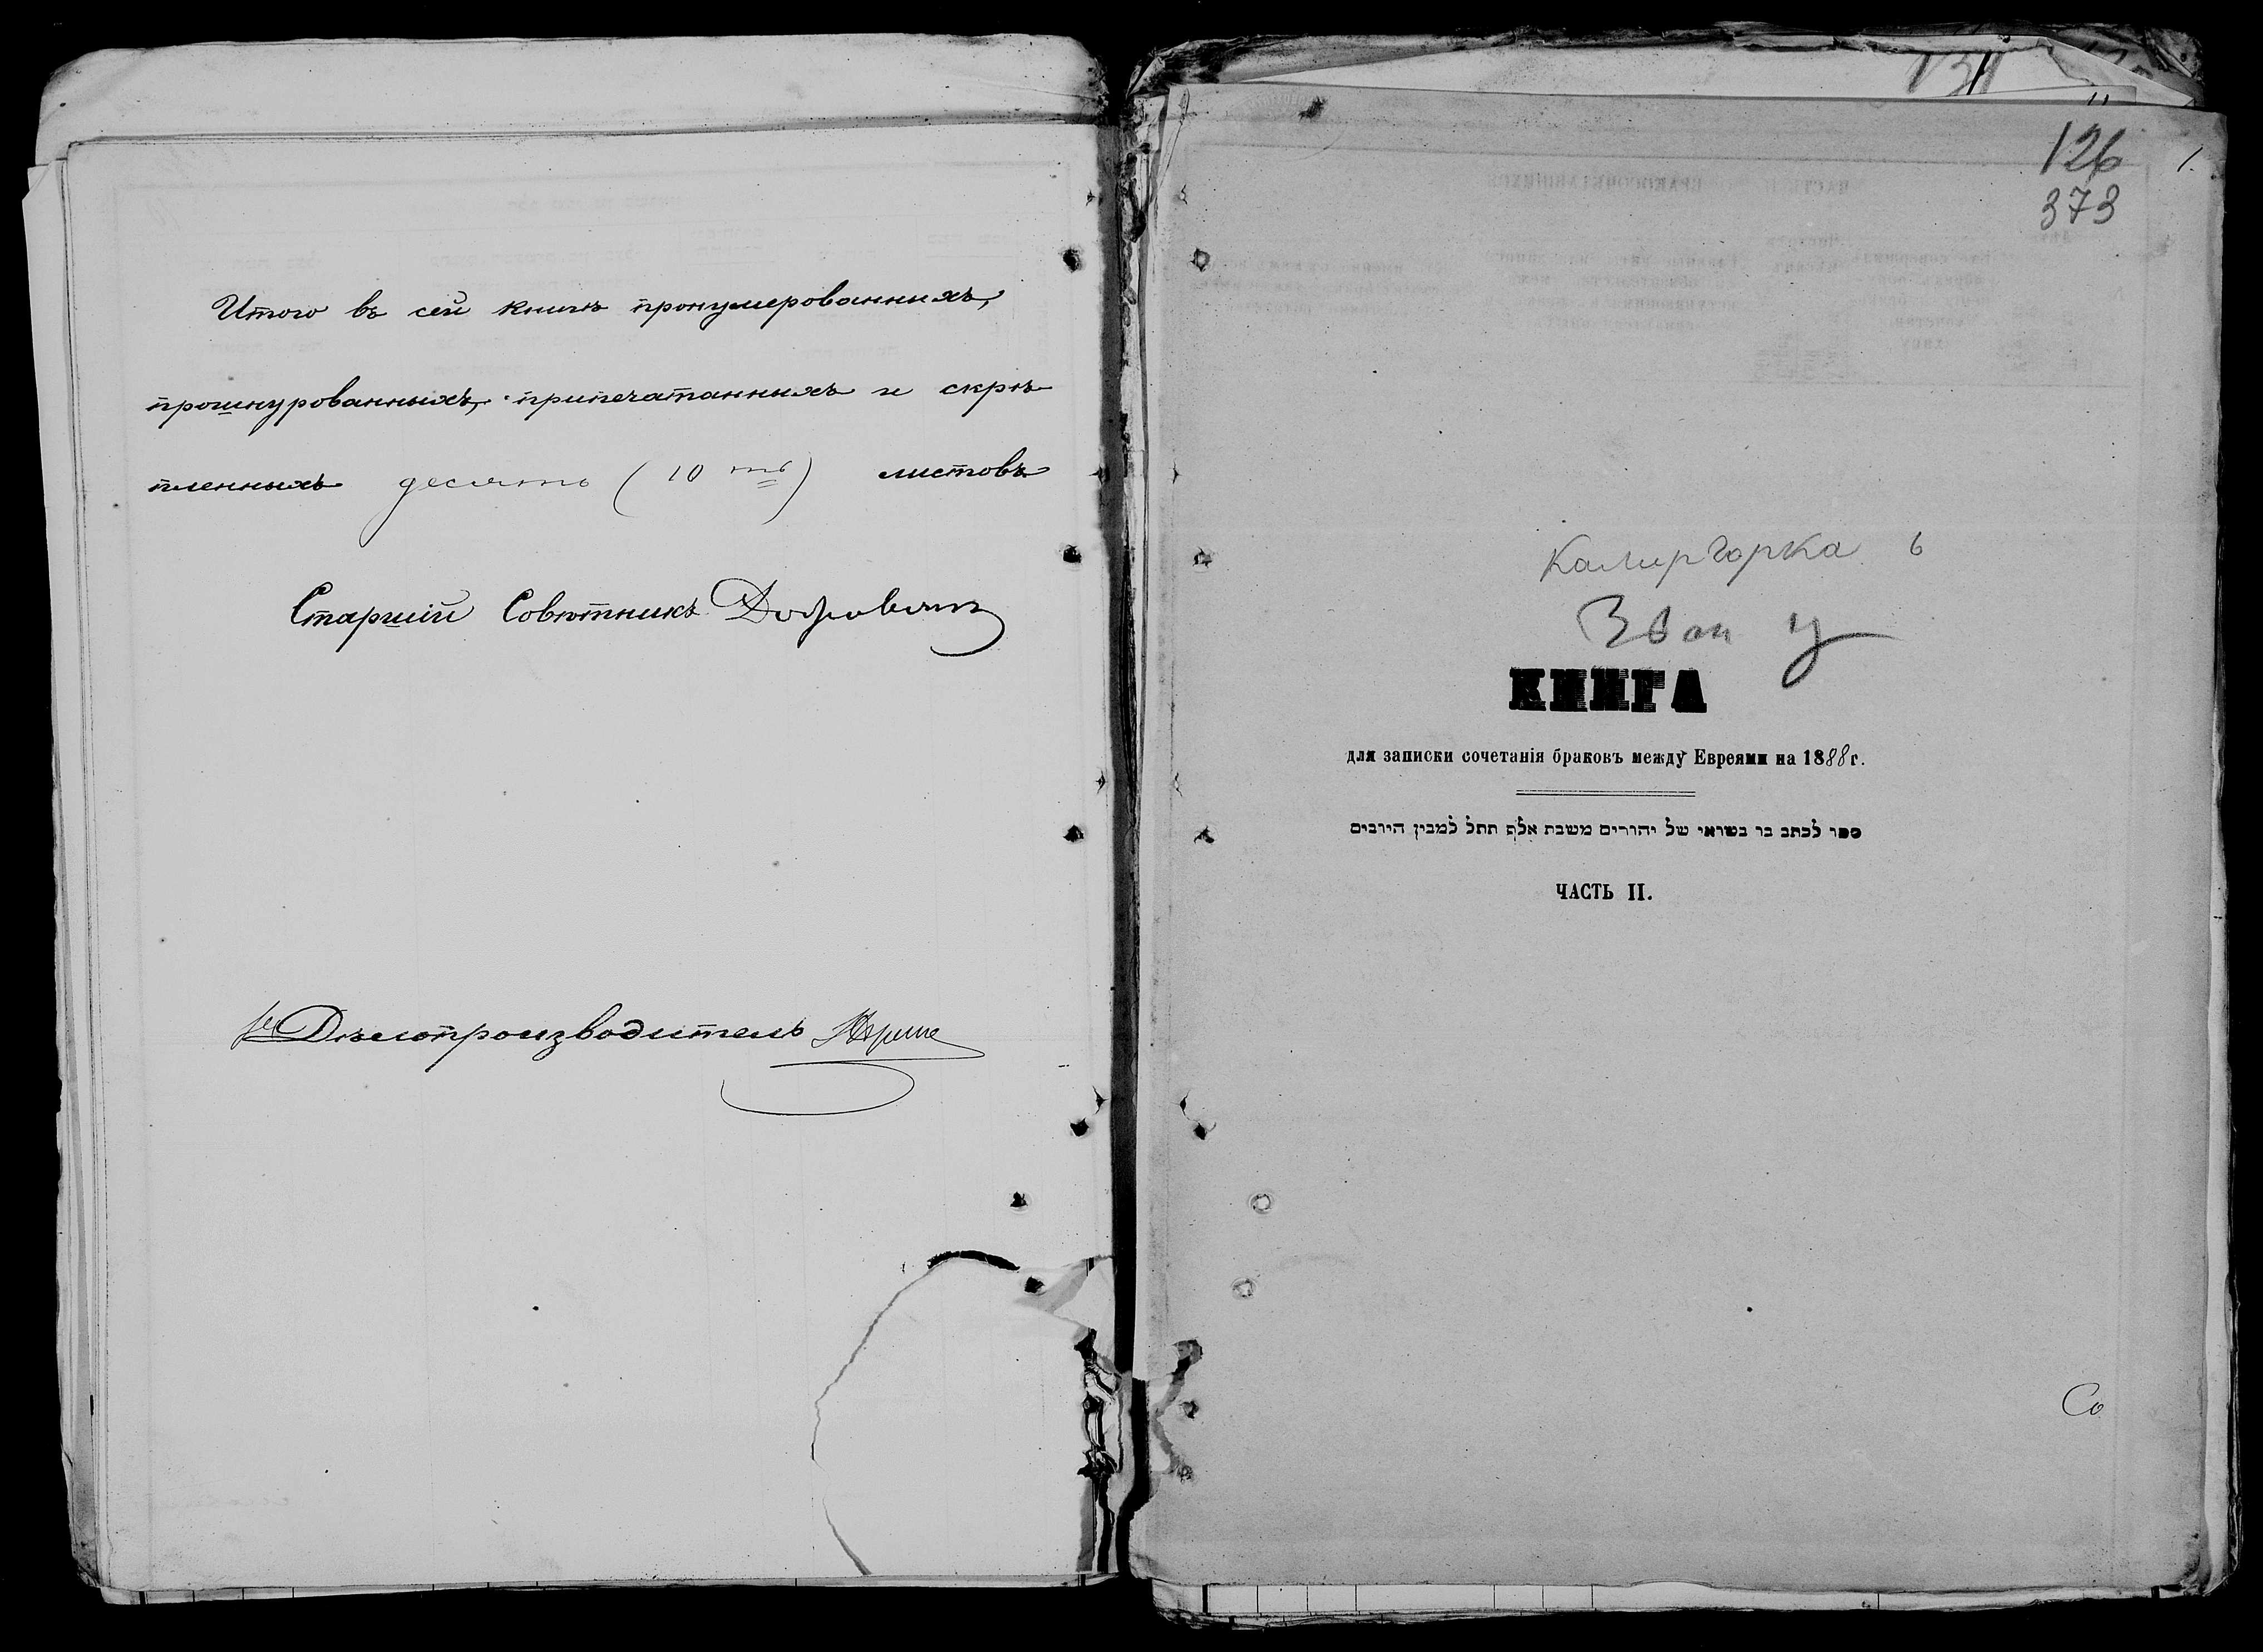 Итого въ сей книгѣ пронумерованныхъ,
прошнурованныхъ, припечатанныхъ и скрѣ
пленныхъ десять (10 ть) листовъ
Старшій Совѣтникъ
Дѣлопроизводитель
131
126
1.
373
Калигорка 6
Звон у
КНИГА
для записки сочетанія браковъ между Евреями на 1888 г.
ספר לכתב בו נשואי של יהודים משנת אלף תתל למנין היוונים
ЧАСТЬ II.
Со